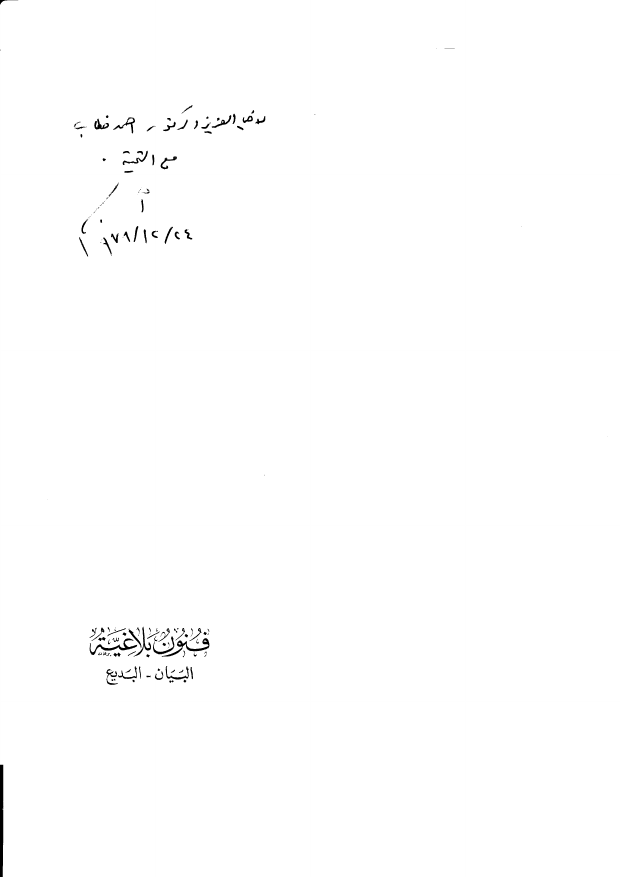 للأخ العزيز الدكتور احمد خطاب
مع التحية .
١٩٧٩/١٢/٢٤
فُنونٌ بَلاغيَّة
البَيَان - البَديع